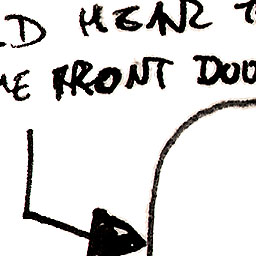 LD HEAR T
HE FRONT DOO